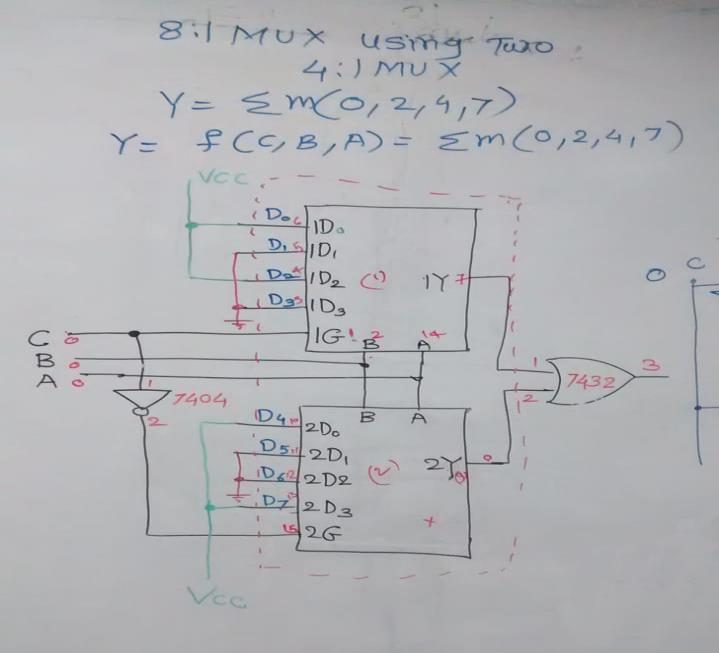 8:1 MUX using Two
4:1 MUX
Y = Σm(0,2,4,7)
Y = f(C,B,A) = Σm(0,2,4,7)
VCC
D0 6 1D0
D1 5 1D1
D2 4 1D2 (1) 1Y 7
D3 3 1D3
C 1G 1 2 14
B A
C
0
B
A
1
7404
2
1
7432
3
2
B A
D4 10 2D0
D5 11 2D1
D6 12 2D2 (2) 2Y 9
D7 2D3
15 2G
+
VCC